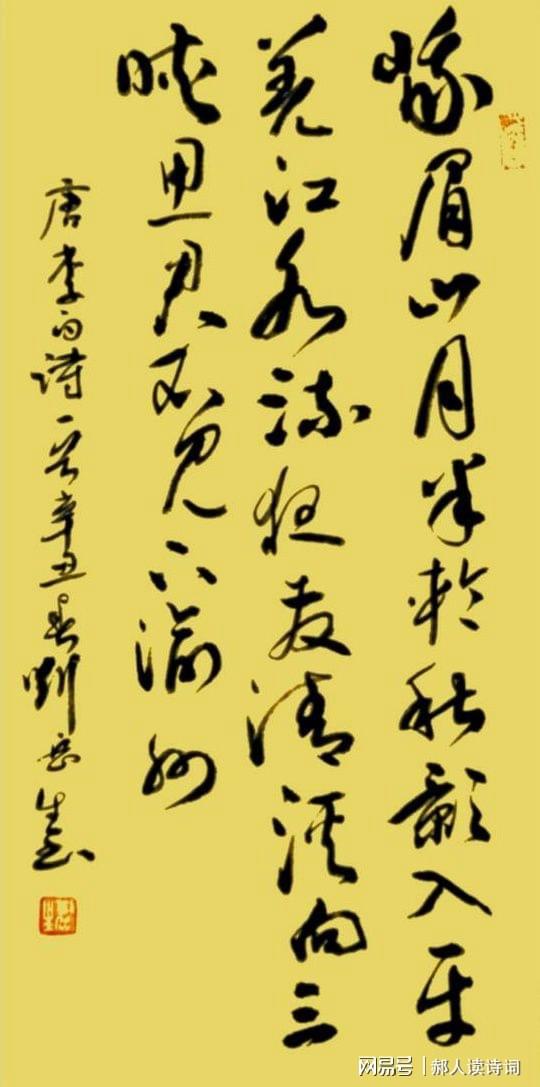 峨眉山月半轮秋影入平
羌江水流夜发清溪向三
峡思君不见下渝州
唐李白诗一首辛丑春刘岳
网易号 | 郝人读诗词